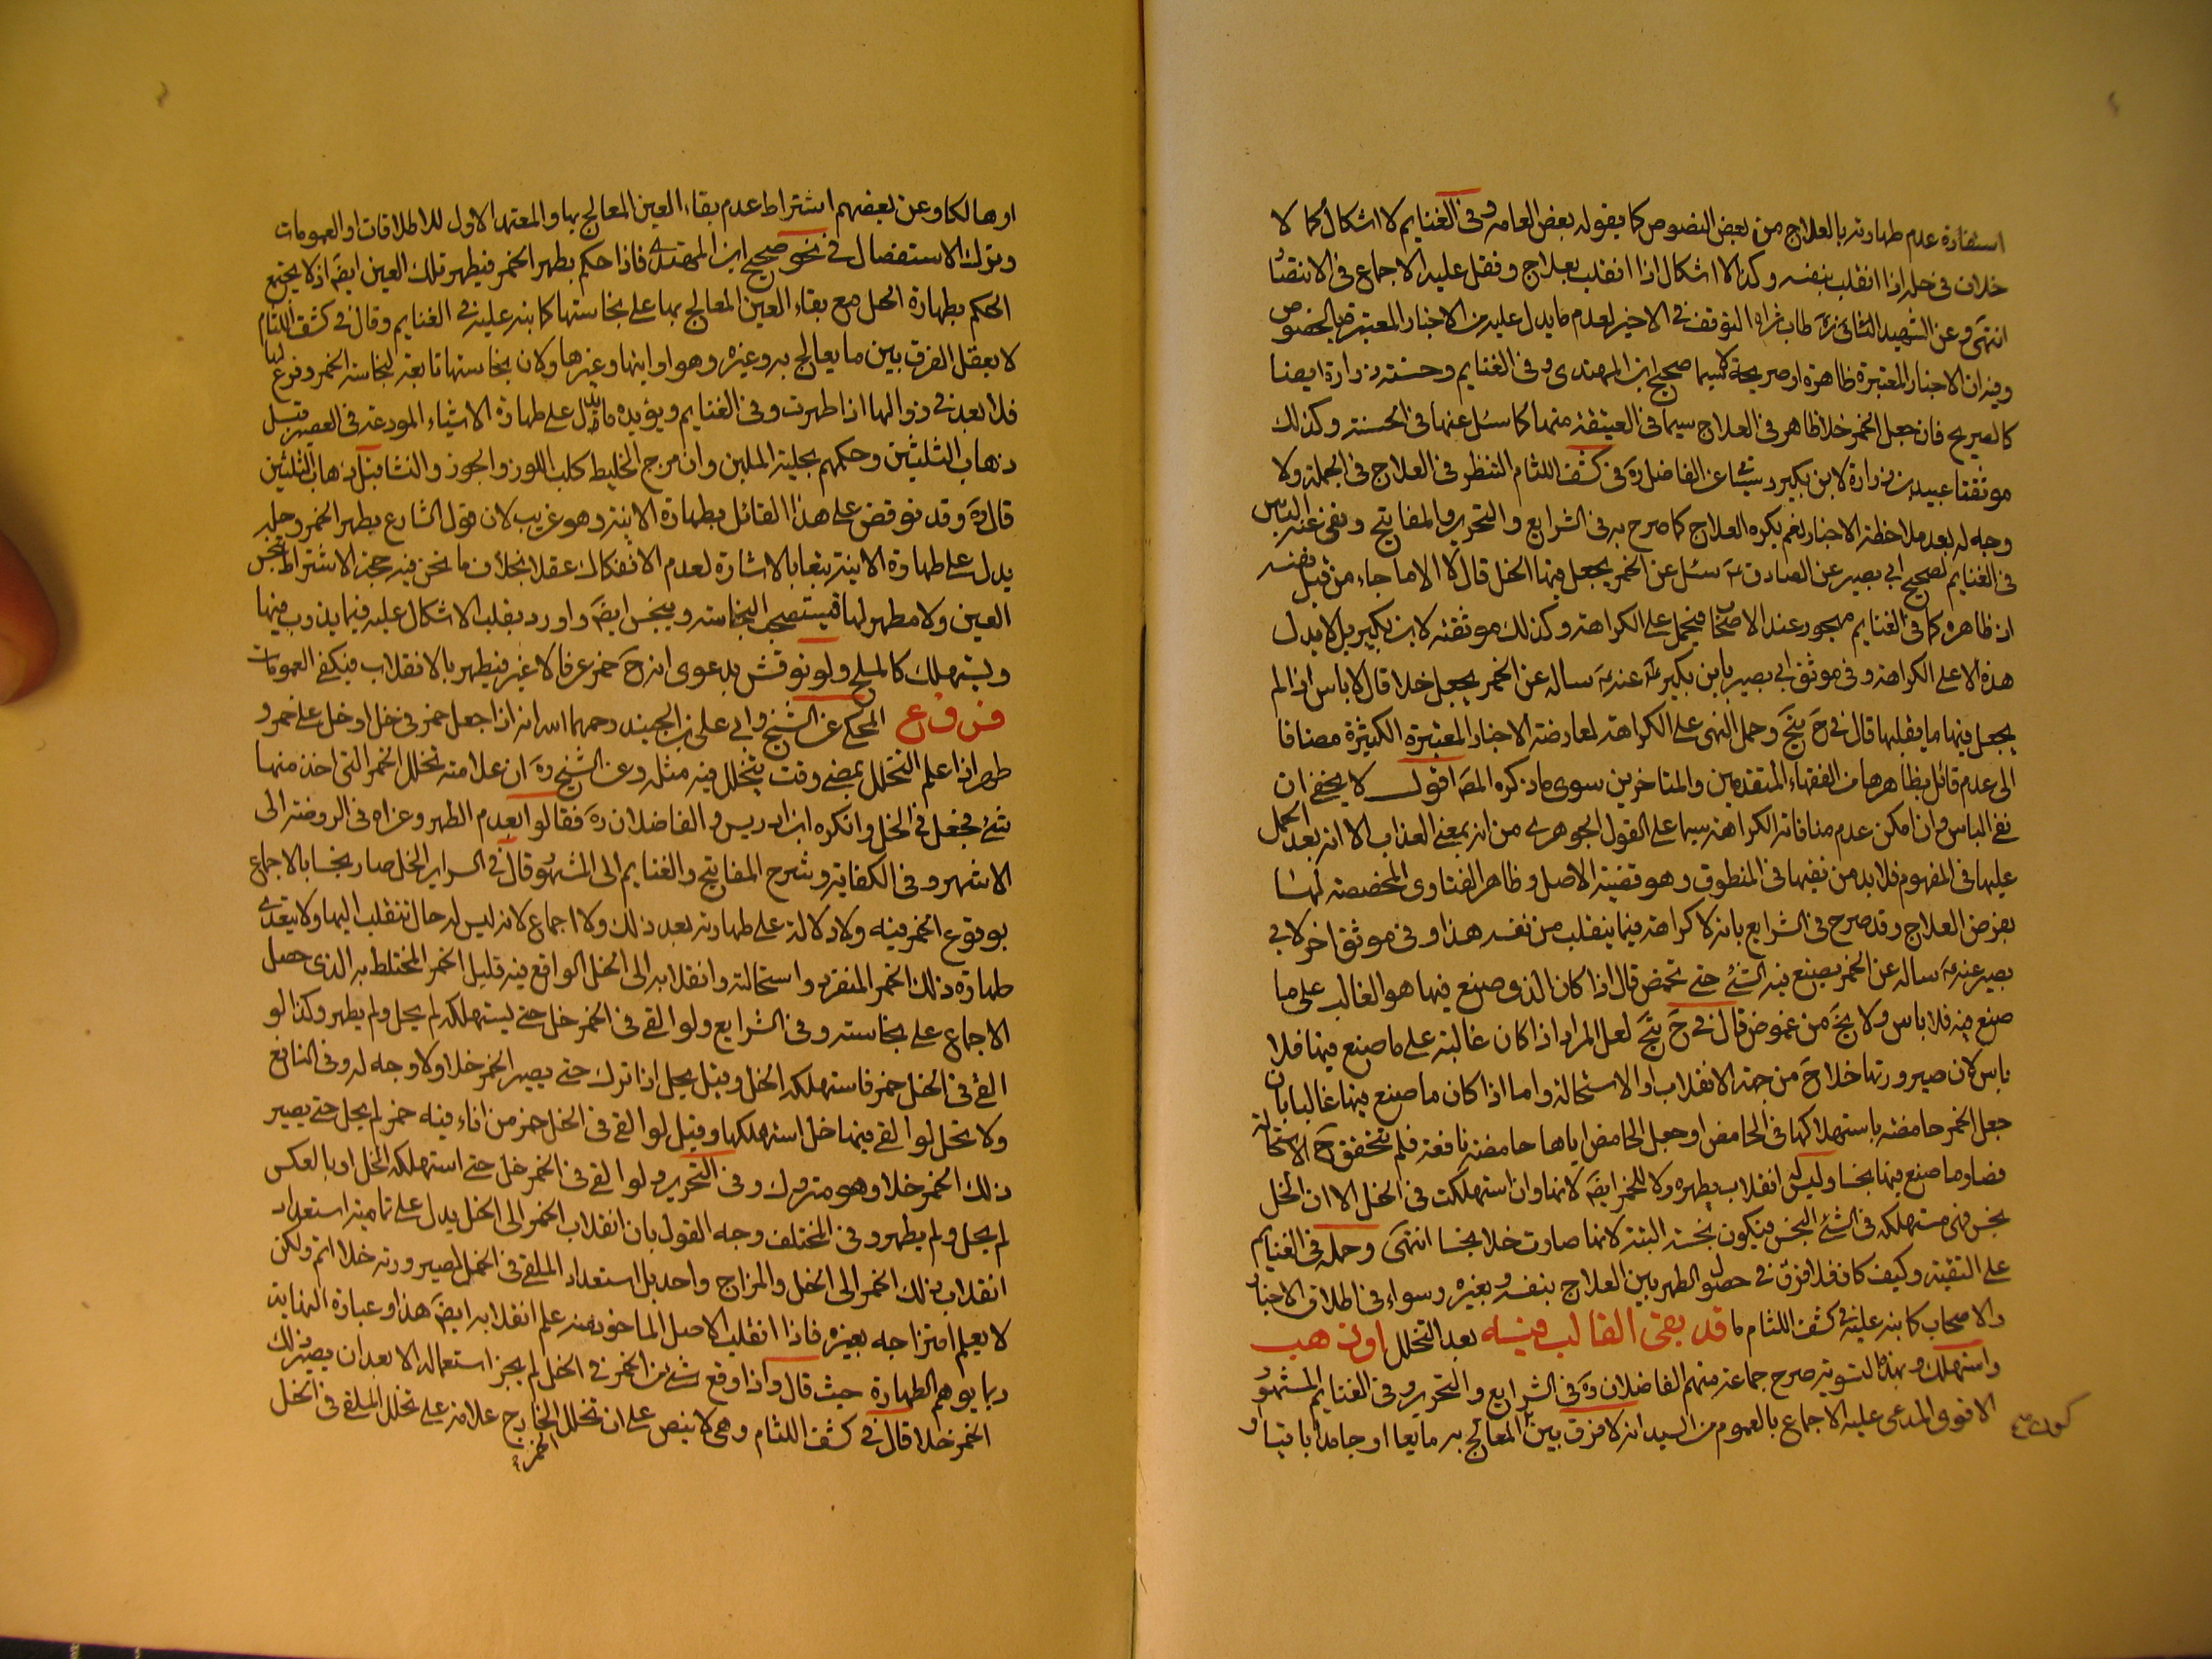 استفادة عدم طهارته بالعلاج من بعض النصوص كما يقوله بعض العامه وفى الغنايم لا اشكال كما لا
خلاف فى حله اذا انقلب بنفسه وكذا لا اشكال اذا انقلب بعلاج ونقل عليه الاجماع فى الانتصار
انتهى وعن الشهيد الثانى طاب ثراه التوقف فى الاخير لعدم ما يدل عليه من الاخبار المعتبره بالخصوص
وفيه ان الاخبار المعتبرة ظاهرة او صريحة لاسيما صحيح ابن المهتدى وفى الغنايم وحسنة زرارة ايضا
كالصريح فان جعل الخمر خلا ظاهر فى العلاج سيما فى العتيقة منها كما سئل عنها فى الحسنة وكذلك
موثقتا عبيد بن زرارة لابن بكير عن الفاضل ره فى كشف اللثام التنظر فى العلاج فى الجملة ولا
وجه له بعد ملاحظة الاخبار نعم يكره العلاج كما صرح به فى الشرايع والتحرير والمفاتيح ونفى عنه الباس
فى الغنايم لصحيح ابى بصير عن الصادق ع سئل عن الخمر يجعل فيها الخل قال لا الا ما جاء من قبل نفسه
اذ ظاهره كما فى الغنايم مهجور عند الاصحاب فيحمل على الكراهة وكذلك موثقته لابن بكير بل لا يدل
هذه الا على الكراهة وفى موثق ابى بصير بابن بكير عنه ع ساله عن الخمر يجعل خلا قال لا باس اذا لم
يجعل فيها ما يقلبها قال فى ح يتج وحمل النهى على الكراهة لمعارضة الاخبار المعتبرة الكثيرة مضافا
الى عدم قائل بظاهرها من الفقهاء المتقدمين والمتاخرين سوى ما ذكره المص اقول لا يخفى ان
نفى الباس وان امكن عدم منافاته الكراهة سيما على القول الجوهرى من انه بمعنى العذاب الا انه بعد الحمل
عليها فى المفهوم فلا بد من نفيها فى المنطوق وهو قضية الاصل وظاهر الفتاوى المخصصة لها
بفرض العلاج وقد صرح فى الشرايع بانه لا كراهة فيما ينقلب من نفسه هذا وفى موثق اخر لابى
بصير عنه ع ساله عن الخمر يصنع فيه الشئ حتى تحمض قال اذا كان الذى صنع فيها هو الغالب على ما
صنع فيه فلا باس ولا يخ من غموض قال فى ح يتج لعل المراد اذا كان غالبة على ما صنع فيها فلا
باس لان صيرورتها خلا ح من جهة الانقلاب او الاستحالة واما اذا كان ما صنع فيها غالبا بان
جعل الخمر حامضة باستهلاكها فى الحامض او جعل الحامض اياها حامضة نافعة فلم يتحقق ح الاستحالة
فصار ما صنع فيها نجسا وليس له انقلاب يطهره ولا للخمر ايضً لانها وان استهلكت فى الخل الا ان الخل
نجس فهى مستهلكة فى الشئ النجس فيكون نجسة البتة لانها صارت خلا نجسا انتهى وحمله فى الغنايم
على التقية وكيف كان فلا فرق فى حصول الطهر بين العلاج بنفسه وبغيره وسواء فى اطلاق الاخبار
والاصحاب كما نبه عليه فى كشف اللثام ما قد يقى القالب فيه بعد التخلل او ذهب
واستهلك وبهذه التسوية صرح جماعة منهم الفاضلان ره فى الشرايع والتحرير وفى الغنايم المشهور
الاقوى المدعى عليه الاجماع بالعموم من السيد انه لا فرق بين كون المعالج به مايعا او جامدا باقيا او
او هالكا وعن بعضهم اشتراط عدم بقاء العين المعالج بها والمعتمد الاول للاطلاقات والعمومات
وترك الاستفصال فى نحو صحيح ابن المهتدى فاذا حكم بطهر الخمر فيطهر تلك العين ايضً اذ لا يجتمع
الحكم بطهارة الخل مع بقاء العين المعالج بها على نجاستها كما نبه عليه فى الغنايم وقال فى كشف اللثام
لا يعقل الفرق بين ما يعالج به وغيره وهواوانيها وغيرها ولان نجاستها تابعة لنجاسة الخمر وفرع لها
فلا بعد فى زوالها اذا طهرت وفى الغنايم ويؤيده ما دل على طهارة الاشياء المودعة فى العصير قبل
ذهاب الثلثين وحكمهم بحلية الملبن وان مزج الخليط كلب اللوز والجوز والنشا قبل ذهاب الثلثين
قال ره وقد نوقض على هذا القائل بطهارة الانية وهو غريب لان قول الشارع يطهر الخمر وحله
يدل على طهارة الانية تبعا بالاشارة لعدم الانفكاك عقلا بخلاف ما نحن فيه حجة الاشتراط نجس
العين ولا مطهر لها فيستصحب النجاسة وينجس ايضً واورد بقلب الاشكال عليه فيما يذوب فيها
ويستهلك كالملح ولو نوقش بدعوى انه ح خمر عرفا لا غير فيطهر بالانقلاب فيكفى العمومات
فروع المحكى عن الشيخ وابى على بن الجنيد رحمهما الله انه اذا جعل خمر فى خل او خل على خمر و
طهر اذا علم التخلل بمضى وقت يتخلل فيه مثله وعن الشيخ ره ان علامته تخلل الخمر التى اخذ منها
شئ فجعل فى الخل وانكره ابن ادريس والفاضلان ره فقالوا بعدم الطهر وعزاه فى الروضة الى
الاشهر وفى الكفاية وشرح المفاتيح والغنايم الى المشهور قال فى السراير الخل صار نجسا بالاجماع
بوقوع الخمر فيه ولا دلالة على طهارته بعد ذلك ولا اجماع لانه ليس له حال تنقلب اليها ولا يتعدى
طهارة ذلك الخمر المنفرد واستحالته وانقلابه الى الخل الواقع فيه قليل الخمر المختلط به الذى حصل
الاجماع على نجاسته وفى الشرايع ولو القى فى الخمر خل حتى يستهلكه لم يحل ولم يطهر وكذا لو
القى فى الخل خمر فاستهلكه الخل وقيل يحل اذا ترك حتى يصير الخمر خلا ولا وجه له وفى النافع
ولا تحل لو القى فيها خل استهلكها وقيل لو القى فى الخل خمر من اناء فيه خمر لم يحل حتى يصير
ذلك الخمر خلا وهو متروك وفى التحرير ولو القى فى الخمر خل حتى استهلكه الخل او بالعكس
لم يحل ولم يطهر وفى المختلف وجه القول بان انقلاب الخمر الى الخل يدل على تمامية استعداد
انقلاب ذلك الخمر الى الخل والمزاج واحد بل استعداد الملقى فى الخل لصيرورته خلا اتم ولكن
لا يعلم امتزاجه بغيره فاذا انقلب الاصل الماخوذ منه علم انقلابه ايضً هذا وعبارة النهاية
ربما يوهم الطهارة حيث قال واذا وقع شئ من الخمر فى الخل لم يجز استعماله الا بعد ان يصير ذلك
الخمر خلا قال فى كشف اللثام وهى لا ينص على ان تخلل الخارج علامة على تخلل الملقى فى الخل
الخمر